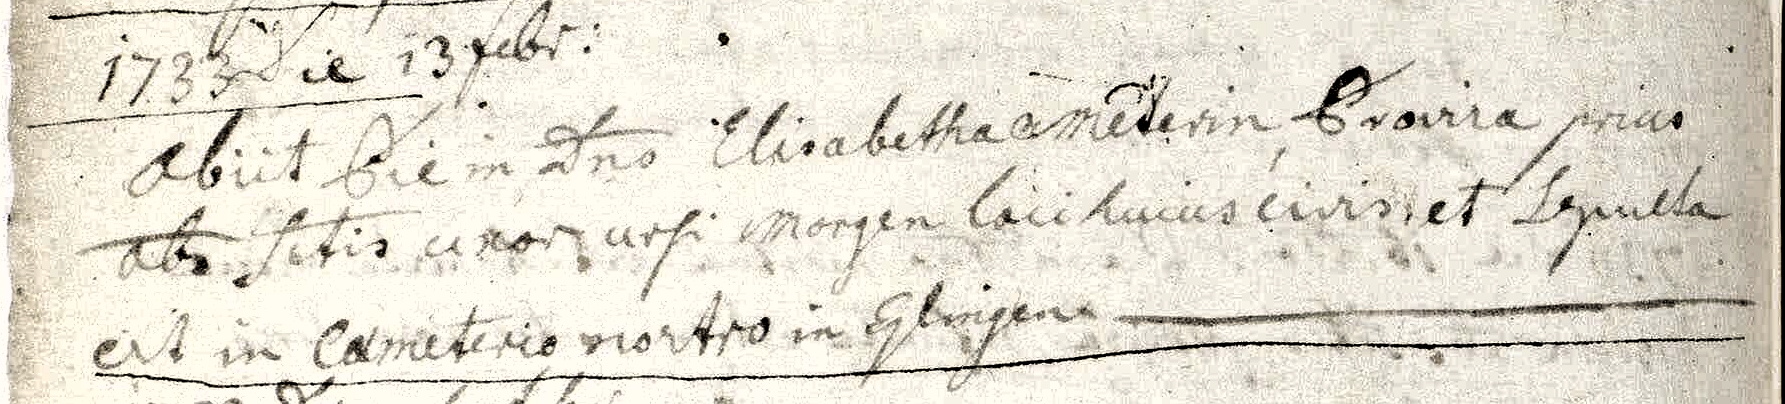 1733 Die 13 febr:
Obiit Pie in Dno Elisabetha Meterin, Provisa prius
uxor ursi Morgen loci huius civis, et Sepulta
est in Cæmeterio nostro in Eglingen